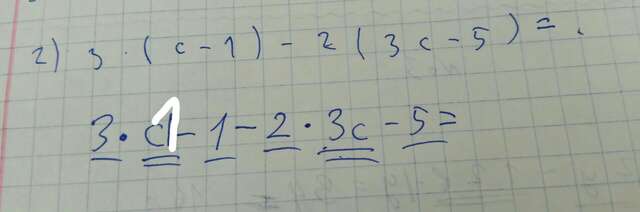 2) 3 · (c - 1) - 2 (3c - 5) = .
3 · c1 - 1 - 2 · 3c - 5 =